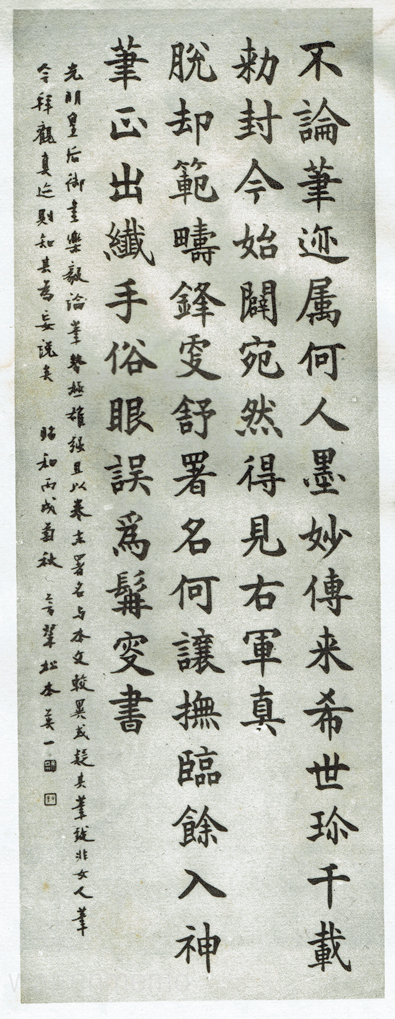 不論筆迹属何人墨妙傳来希世珎千載
勅封今始闢宛然得見右軍真
脱却範疇鋒更舒署名何讓撫臨餘入神
筆正出纖手俗眼誤爲髯叟書
光明皇后御書樂毅論筆勢極雄強且以卷末署名与本文較異或疑其筆蹤非女人筆
今拜觀真迹則知其為妄説矣 昭和丙戌菊秋 芳翠松本英一